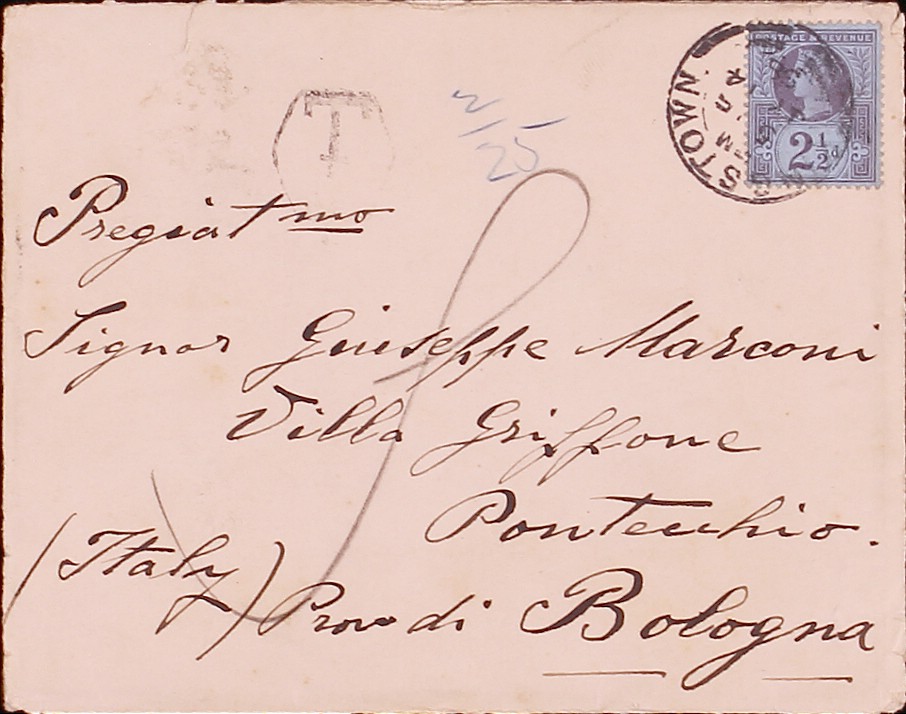 POSTAGE & REVENUE
2½d
STOWN
T
2/25
Pregiatmo
Signor Giuseppe Marconi
Villa Griffone
Pontecchio.
(Italy) Prov di Bologna